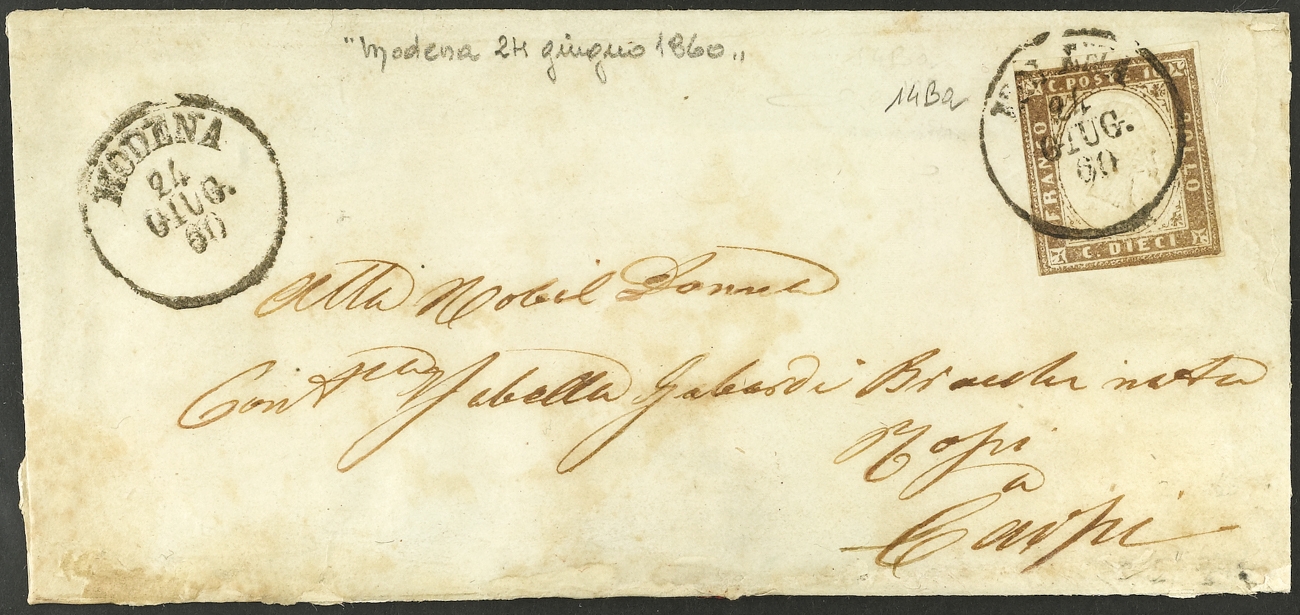 "Modena 24 giugno 1860"
14Ba
MODENA
24
GIUG.
60
MODENA
24
GIUG.
60
C. POSTE 10
FRANCO
BOLLO
C. DIECI
Alla Nobil Donna
Cont.ssa Isabella Gabardi nata
a
Carpi